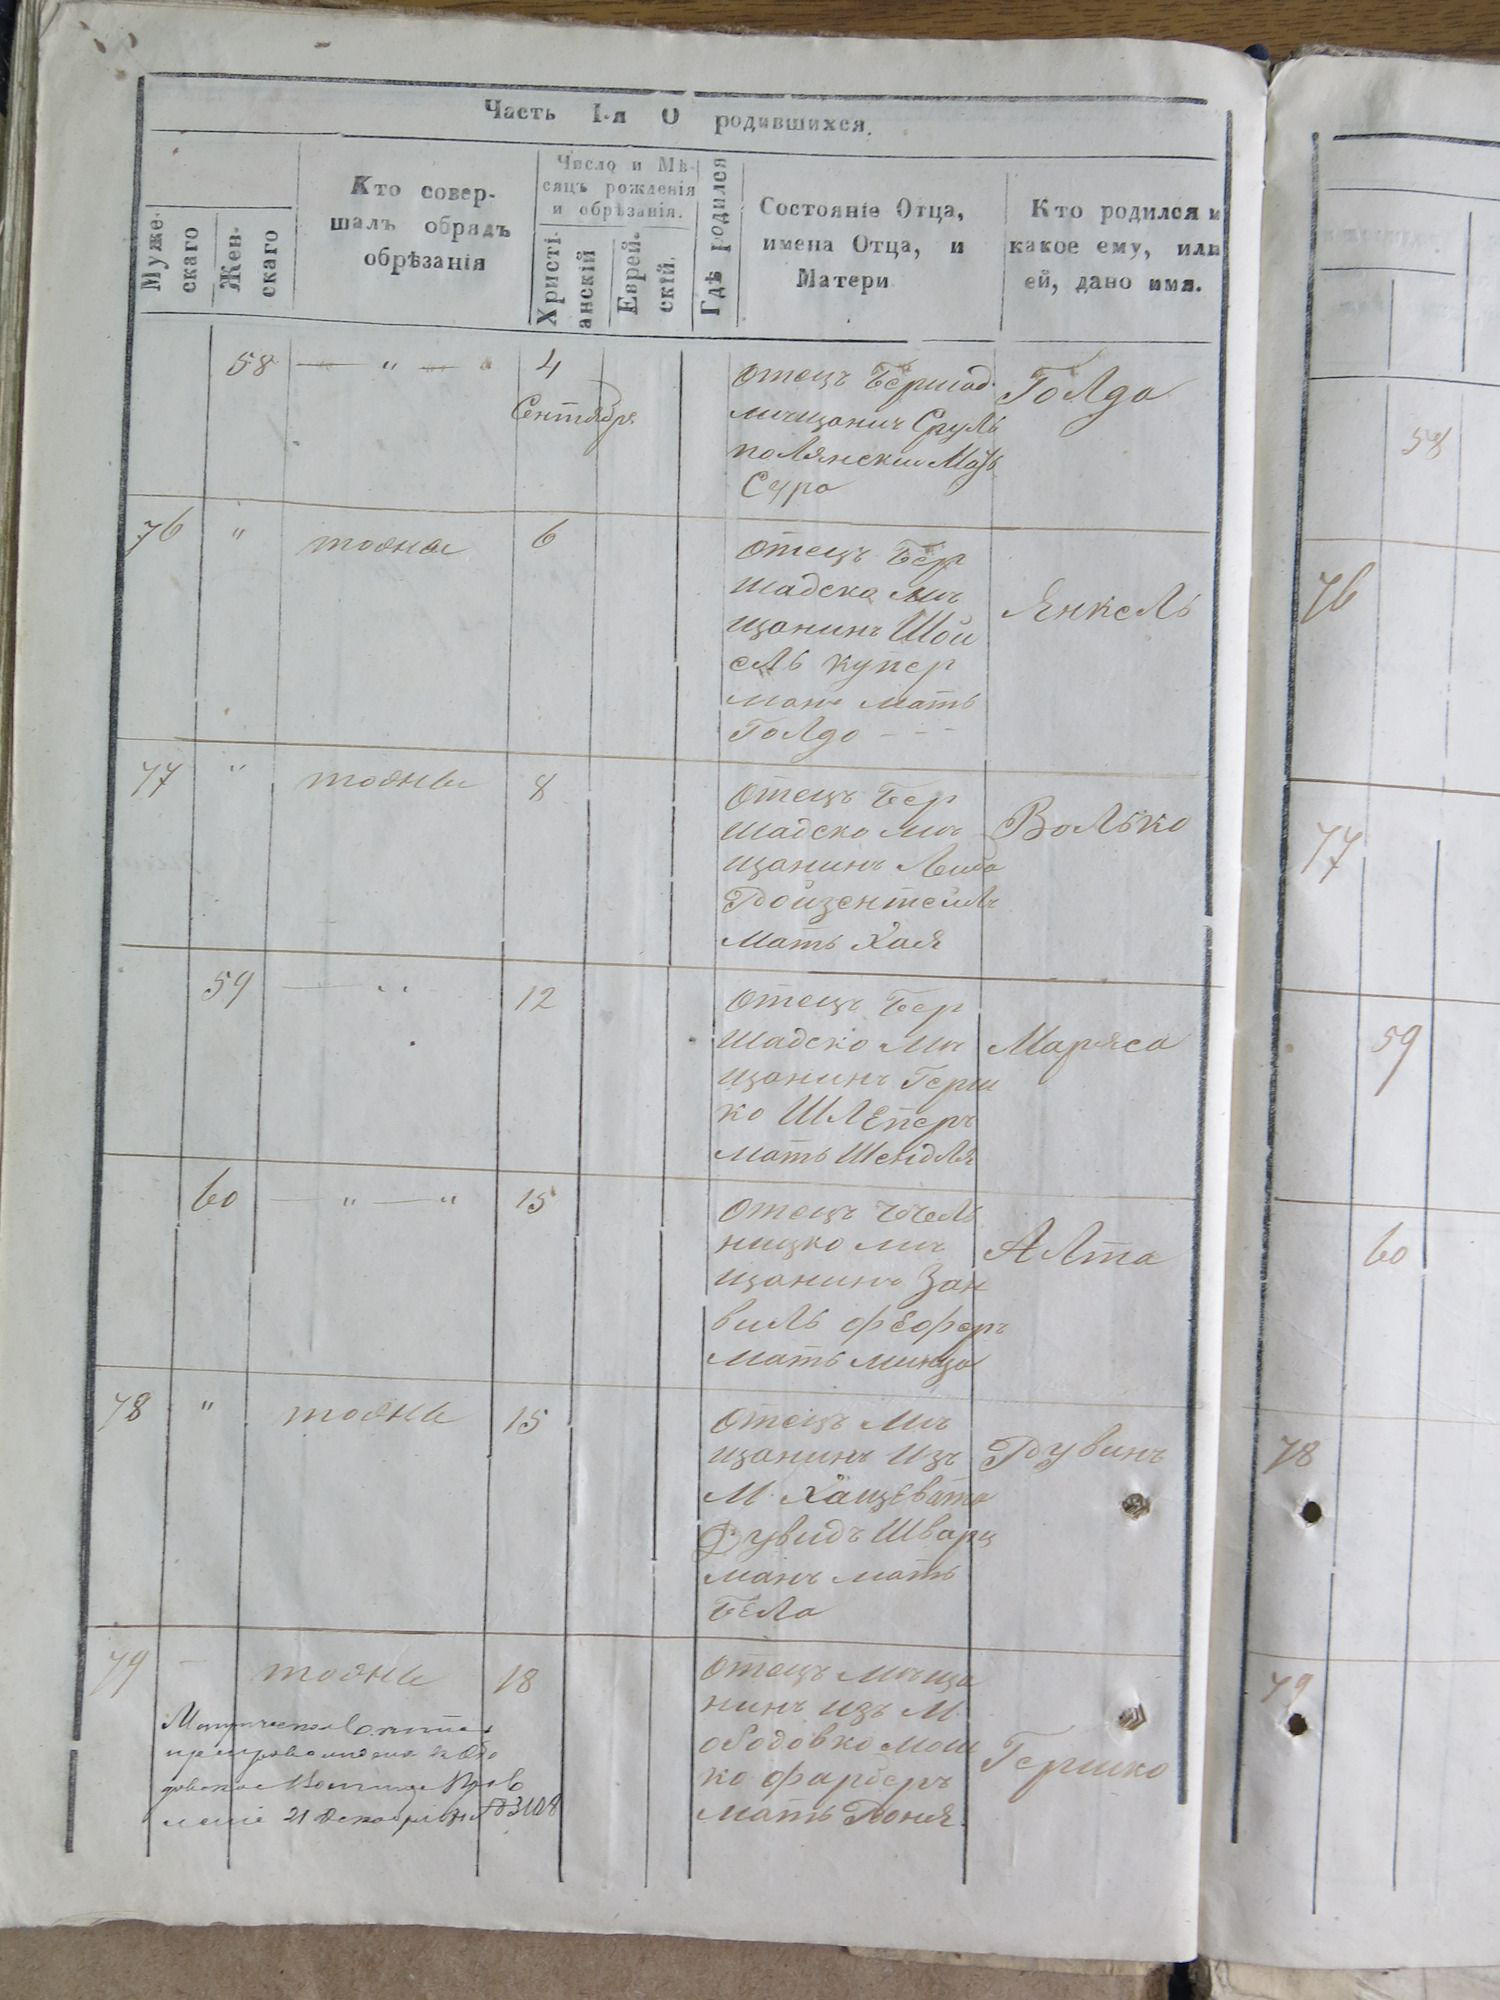 Часть I-я О родившихся.
Муже-
скаго
Жен-
скаго
Кто совер-
шалъ обрядъ
обрѣзанія
Число и Мѣ-
сяцъ рожденія
и обрѣзанія.
Христі-
анскій
Еврей-
скій.
Гдѣ родился
Состояніе Отца,
имена Отца, и
Матери
Кто родился и
какое ему, или
ей, дано имя.
58 — " — 4
Сентября
Отецъ Бершад
мищанин Сруль
полянский Мать
Сура
Голда
76 " тояже 6
Отецъ Бер
шадско мі
щонинъ Шой
ель купер
манъ мать
Голдо - - -
Янкель
77 " тояже 8
Отецъ Бер
шадско мі
щанинъ Лейба
Ройзентейлъ
мать Хая
Волько
59 — " 12
Отецъ Бер
шадско мі
щонинъ Герш
ко Шлеперъ
мать Шендля
Маряса
60 — " — " 15
Отецъ Чечель
ницко мі
щанинъ Зан
виль Феферъ
мать Минца
Алта
78 " тояже 15
Отецъ мі
щанинъ изъ
М. Хащевато
Дувидъ Шварц
манъ мать
Бела
Рувинъ
79 - тояже 18
Отецъ міща
нинъ изъ М.
ободовко Мош
ко фарберъ
мать Роня.
Гершко
21 Декабря 3108
58
76
77
59
60
78
79